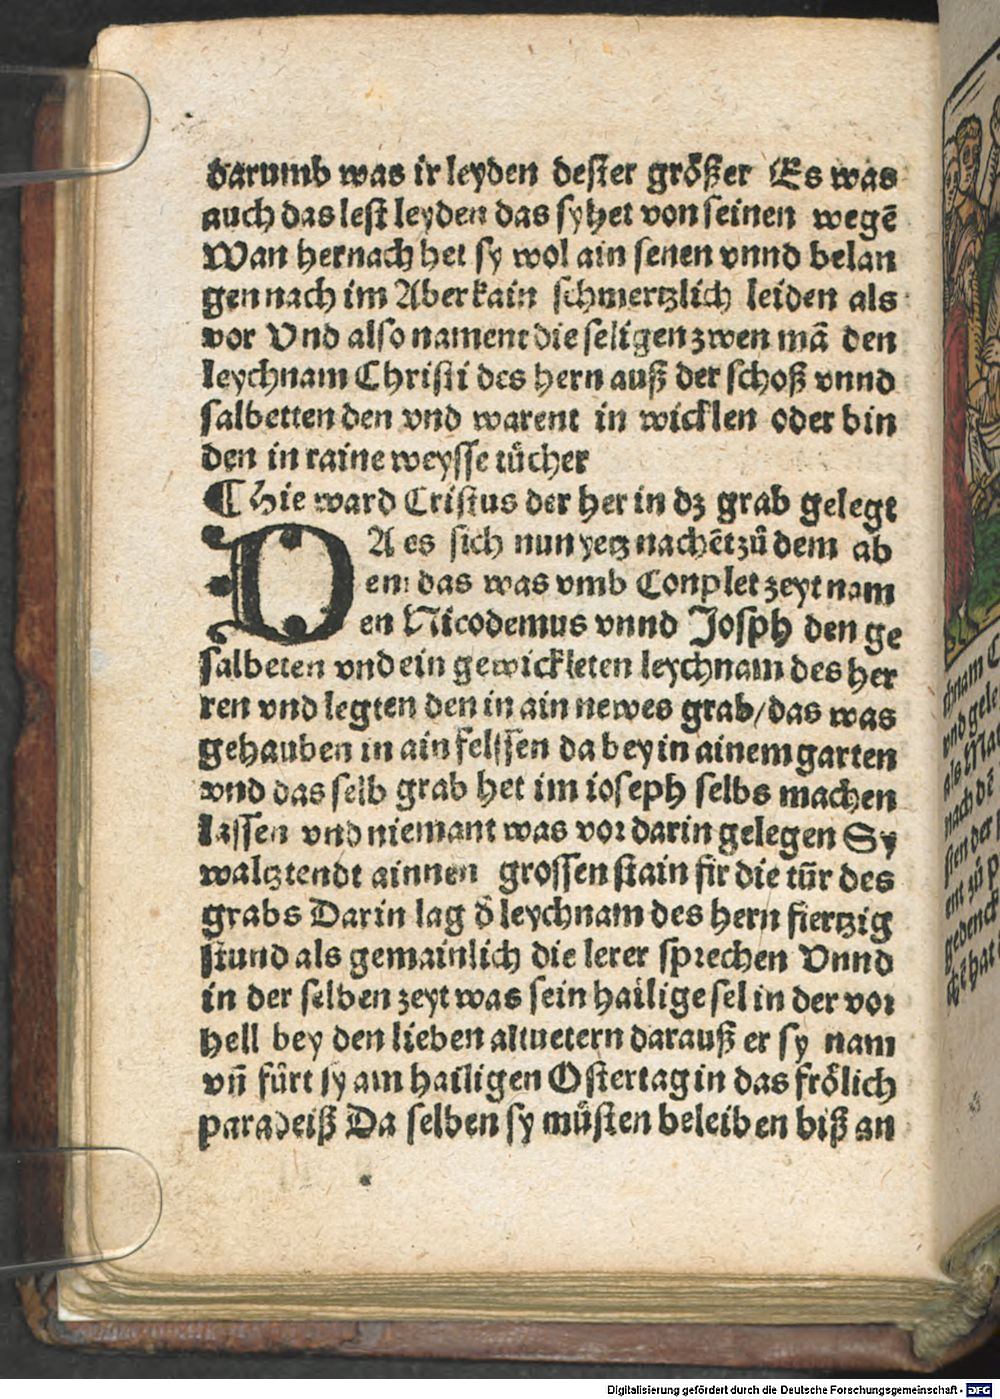 darumb was ir leyden dester größer Es was
auch das lest leyden das sy het von seinen wegē
Wan hernach het sy wol ain senen vnnd belan
gen nach im Aber kain schmertzlich leiden als
vor Vnd also nament die seligen zwen mā den
leychnam Christi des hern auß der schoß vnnd
salbetten den vnd warent in wicklen oder bin
den in raine weysse tücher
¶ Hie ward Cristus der her in dz grab gelegt
DA es sich nun yetz nachēt zů dem ab
ent das was vmb Conplet zeyt nam
en Nicodemus vnnd Joseph den ge
salbeten vnd ein gewickleten leychnam des her
ren vnd legten den in ain newes grab/das was
gehauben in ain felssen da bey in ainem garten
vnd das selb grab het im ioseph selbs machen
lassen vnd niemant was vor darin gelegen Sy
waltztendt ainnen grossen stain fir die tür des
grabs Darin lag d̄ leychnam des hern fiertzig
stund als gemainlich die lerer sprechen Vnnd
in der selben zeyt was sein hailige sel in der vor
hell bey den lieben altuetern darauß er sy nam
vn̄ fůrt sy am hailigen Ostertag in das frölich
paradeiß Da selben sy můsten beleiben biß an
chnam C
vnd gele
als Ma
nach dē
sten der
ent zů p
gedenck
Digitalisierung gefördert durch die Deutsche Forschungsgemeinschaft - DFG